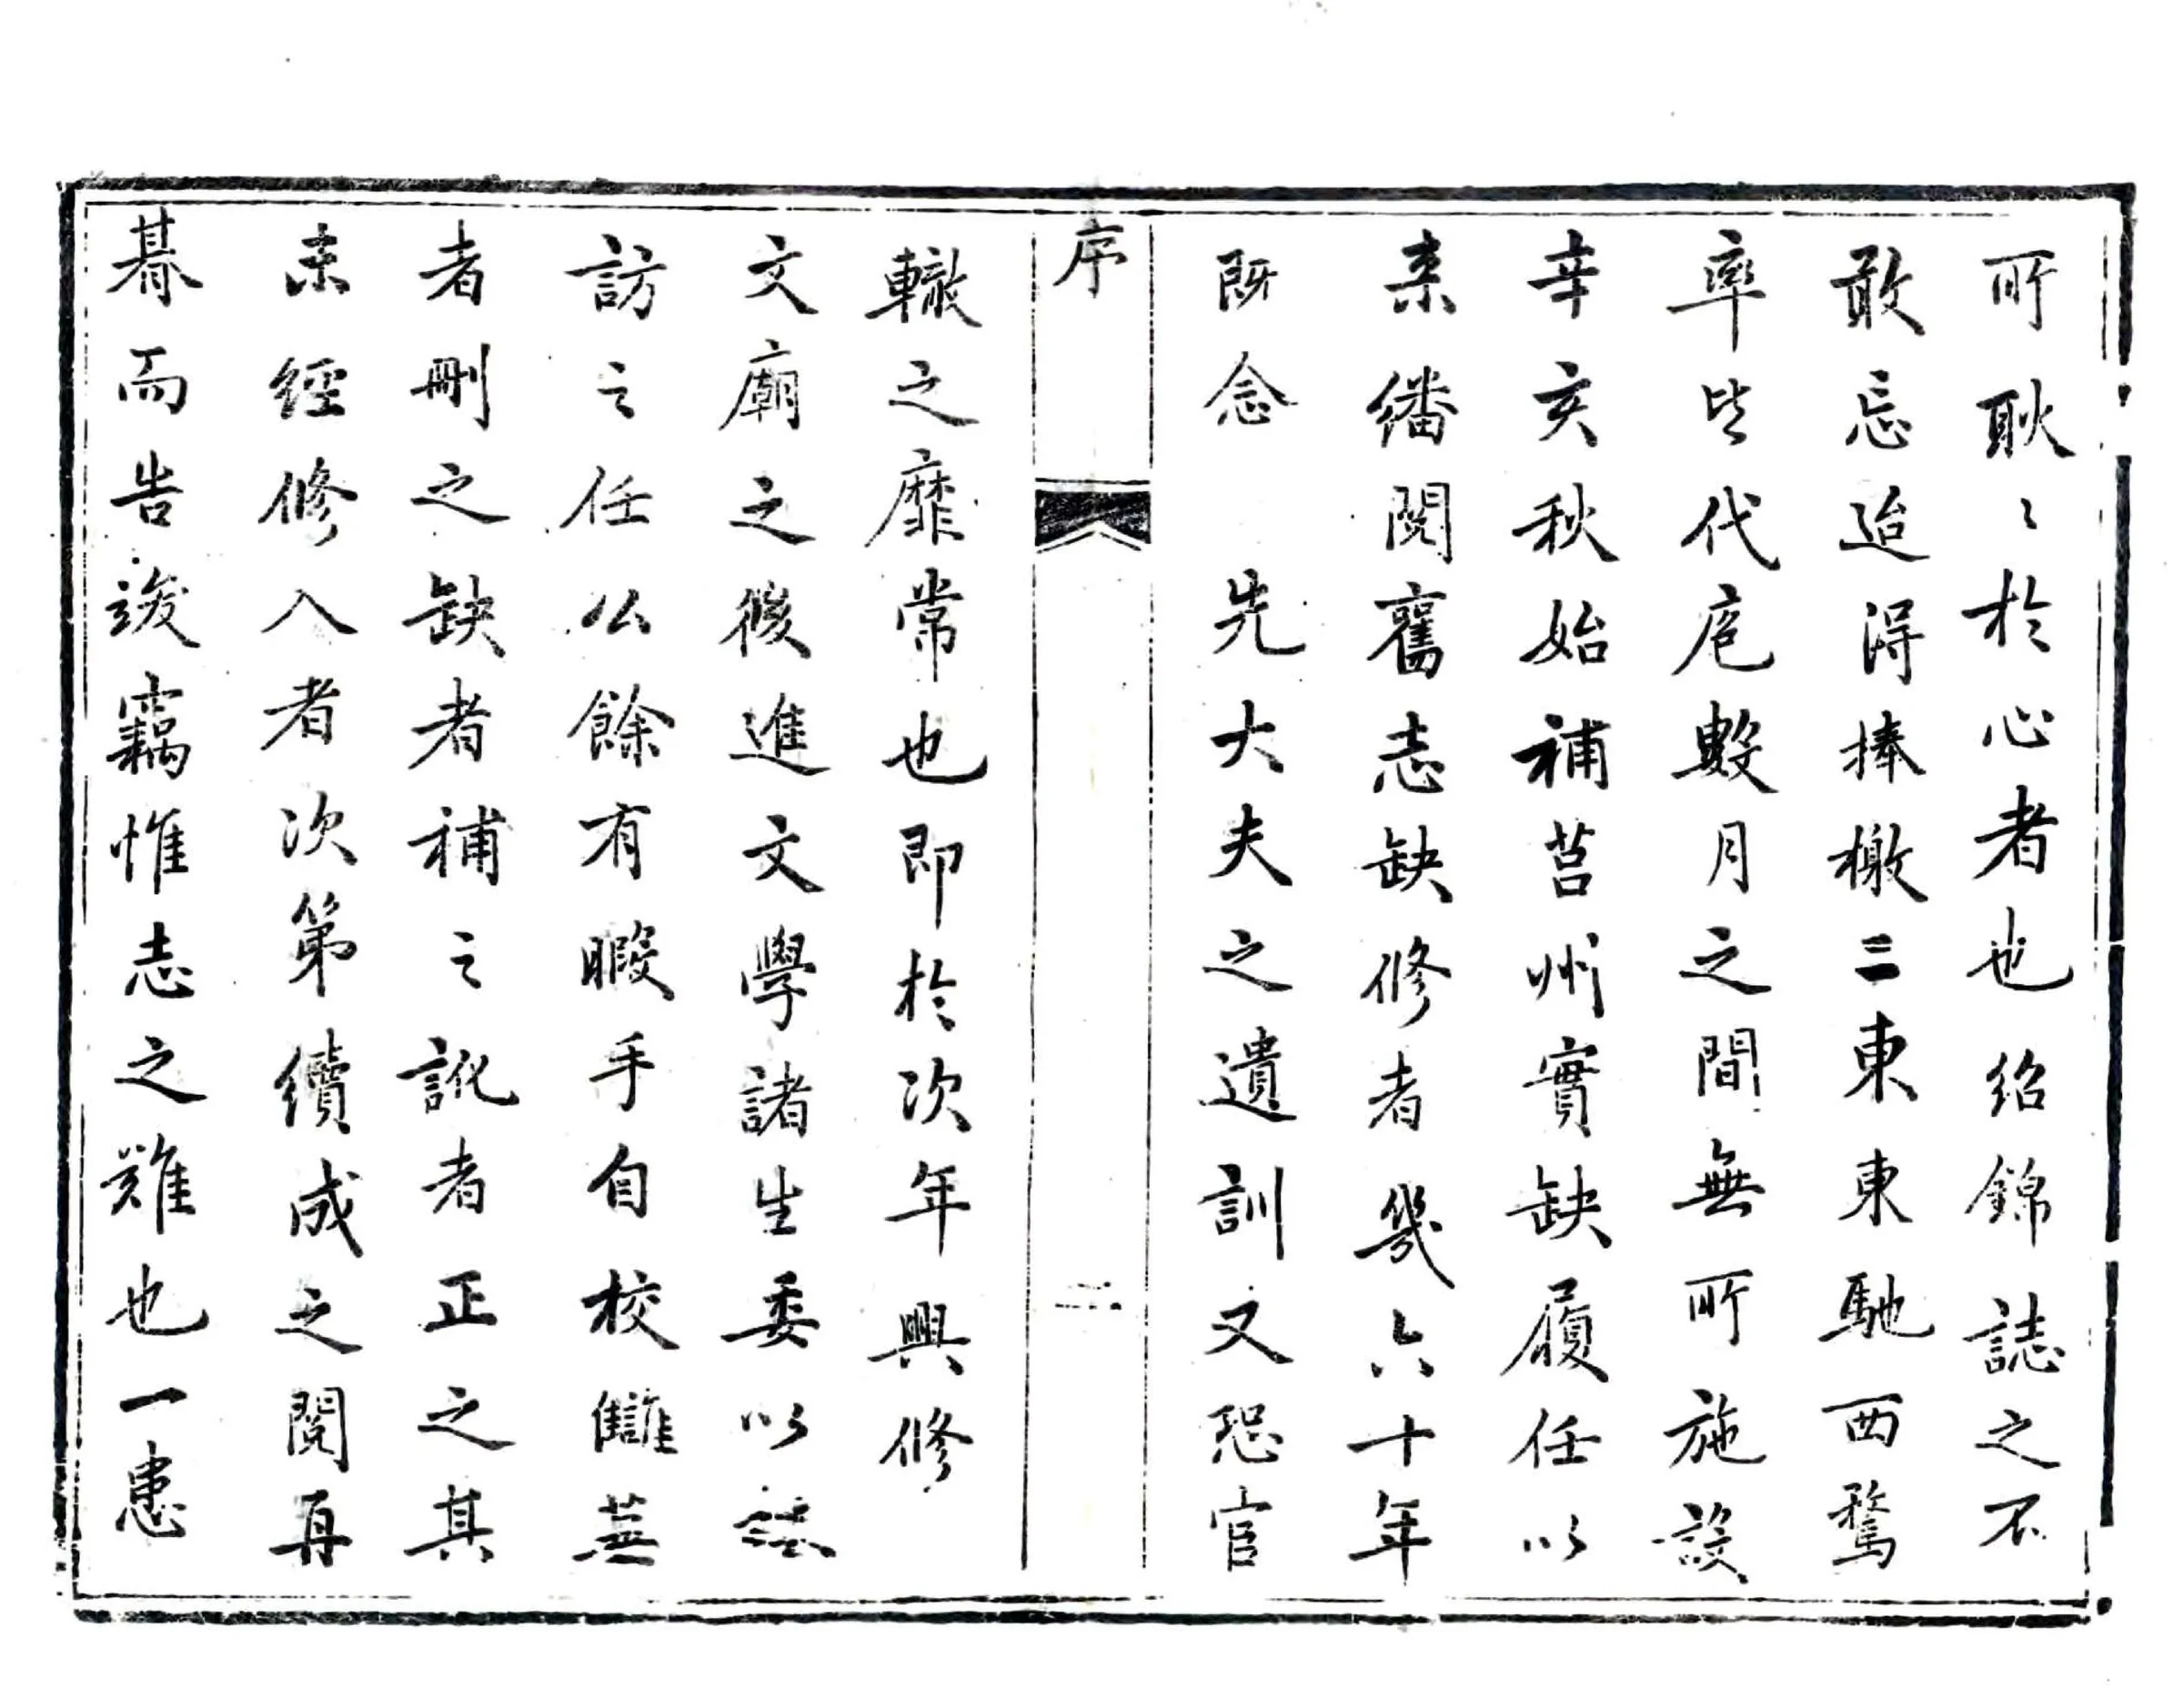 所耿〻於心者也紹錦誌之不
敢忘迨得捧檄三東東馳西騖
率皆代庖數月之間無所施設
辛亥秋始補莒州實缺履任以
来繙閱舊志缺修者幾六十年
既念 先大夫之遺訓又恐官
序
二
轍之靡常也即於次年興修
文廟之後進文學諸生委以採
訪之任公餘有暇手自校讎蕪
者刪之缺者補之訛者正之其
未經修入者次第續成之閱再
朞而告竣竊惟志之難也一患